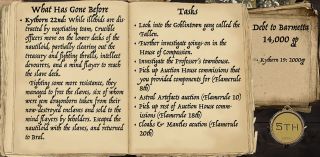 What Has Gone Before
• Kythorn 22nd: While illithids are distracted by negotiating team, crucible
officers move on the lower decks of the
nautiloid, partially clearing out the
treasury and fighting skulls, intellect
devourers, and a mind flayer to reach
the slave deck.
Fighting some more resisters, they
managed to free the slaves, six of whom
were iron dragonborn taken from their
enchanted-in elven resistance and sold to the
mind flayers by holders. Escaped the
nautiloid with the slaves, and returned
to Bral.
Tasks
• Look into the Goldintown gang called the
Fallen.
• Further investigate goings-on in the
House of Compassion.
• Investigate the Professor's townhouse.
• Pick up Auction House commissions that
you provided components for (Flamerule
8th)
• Astral Artifacts auction (Flamerule 10)
• Pick up rest of Auction House
commissions (Flamerule 18th)
• Cloaks & Mantles auction (Flamerule
20th)
Debt to Barmetta
14,000 gp
Kythorn 19: 2000g
5TH